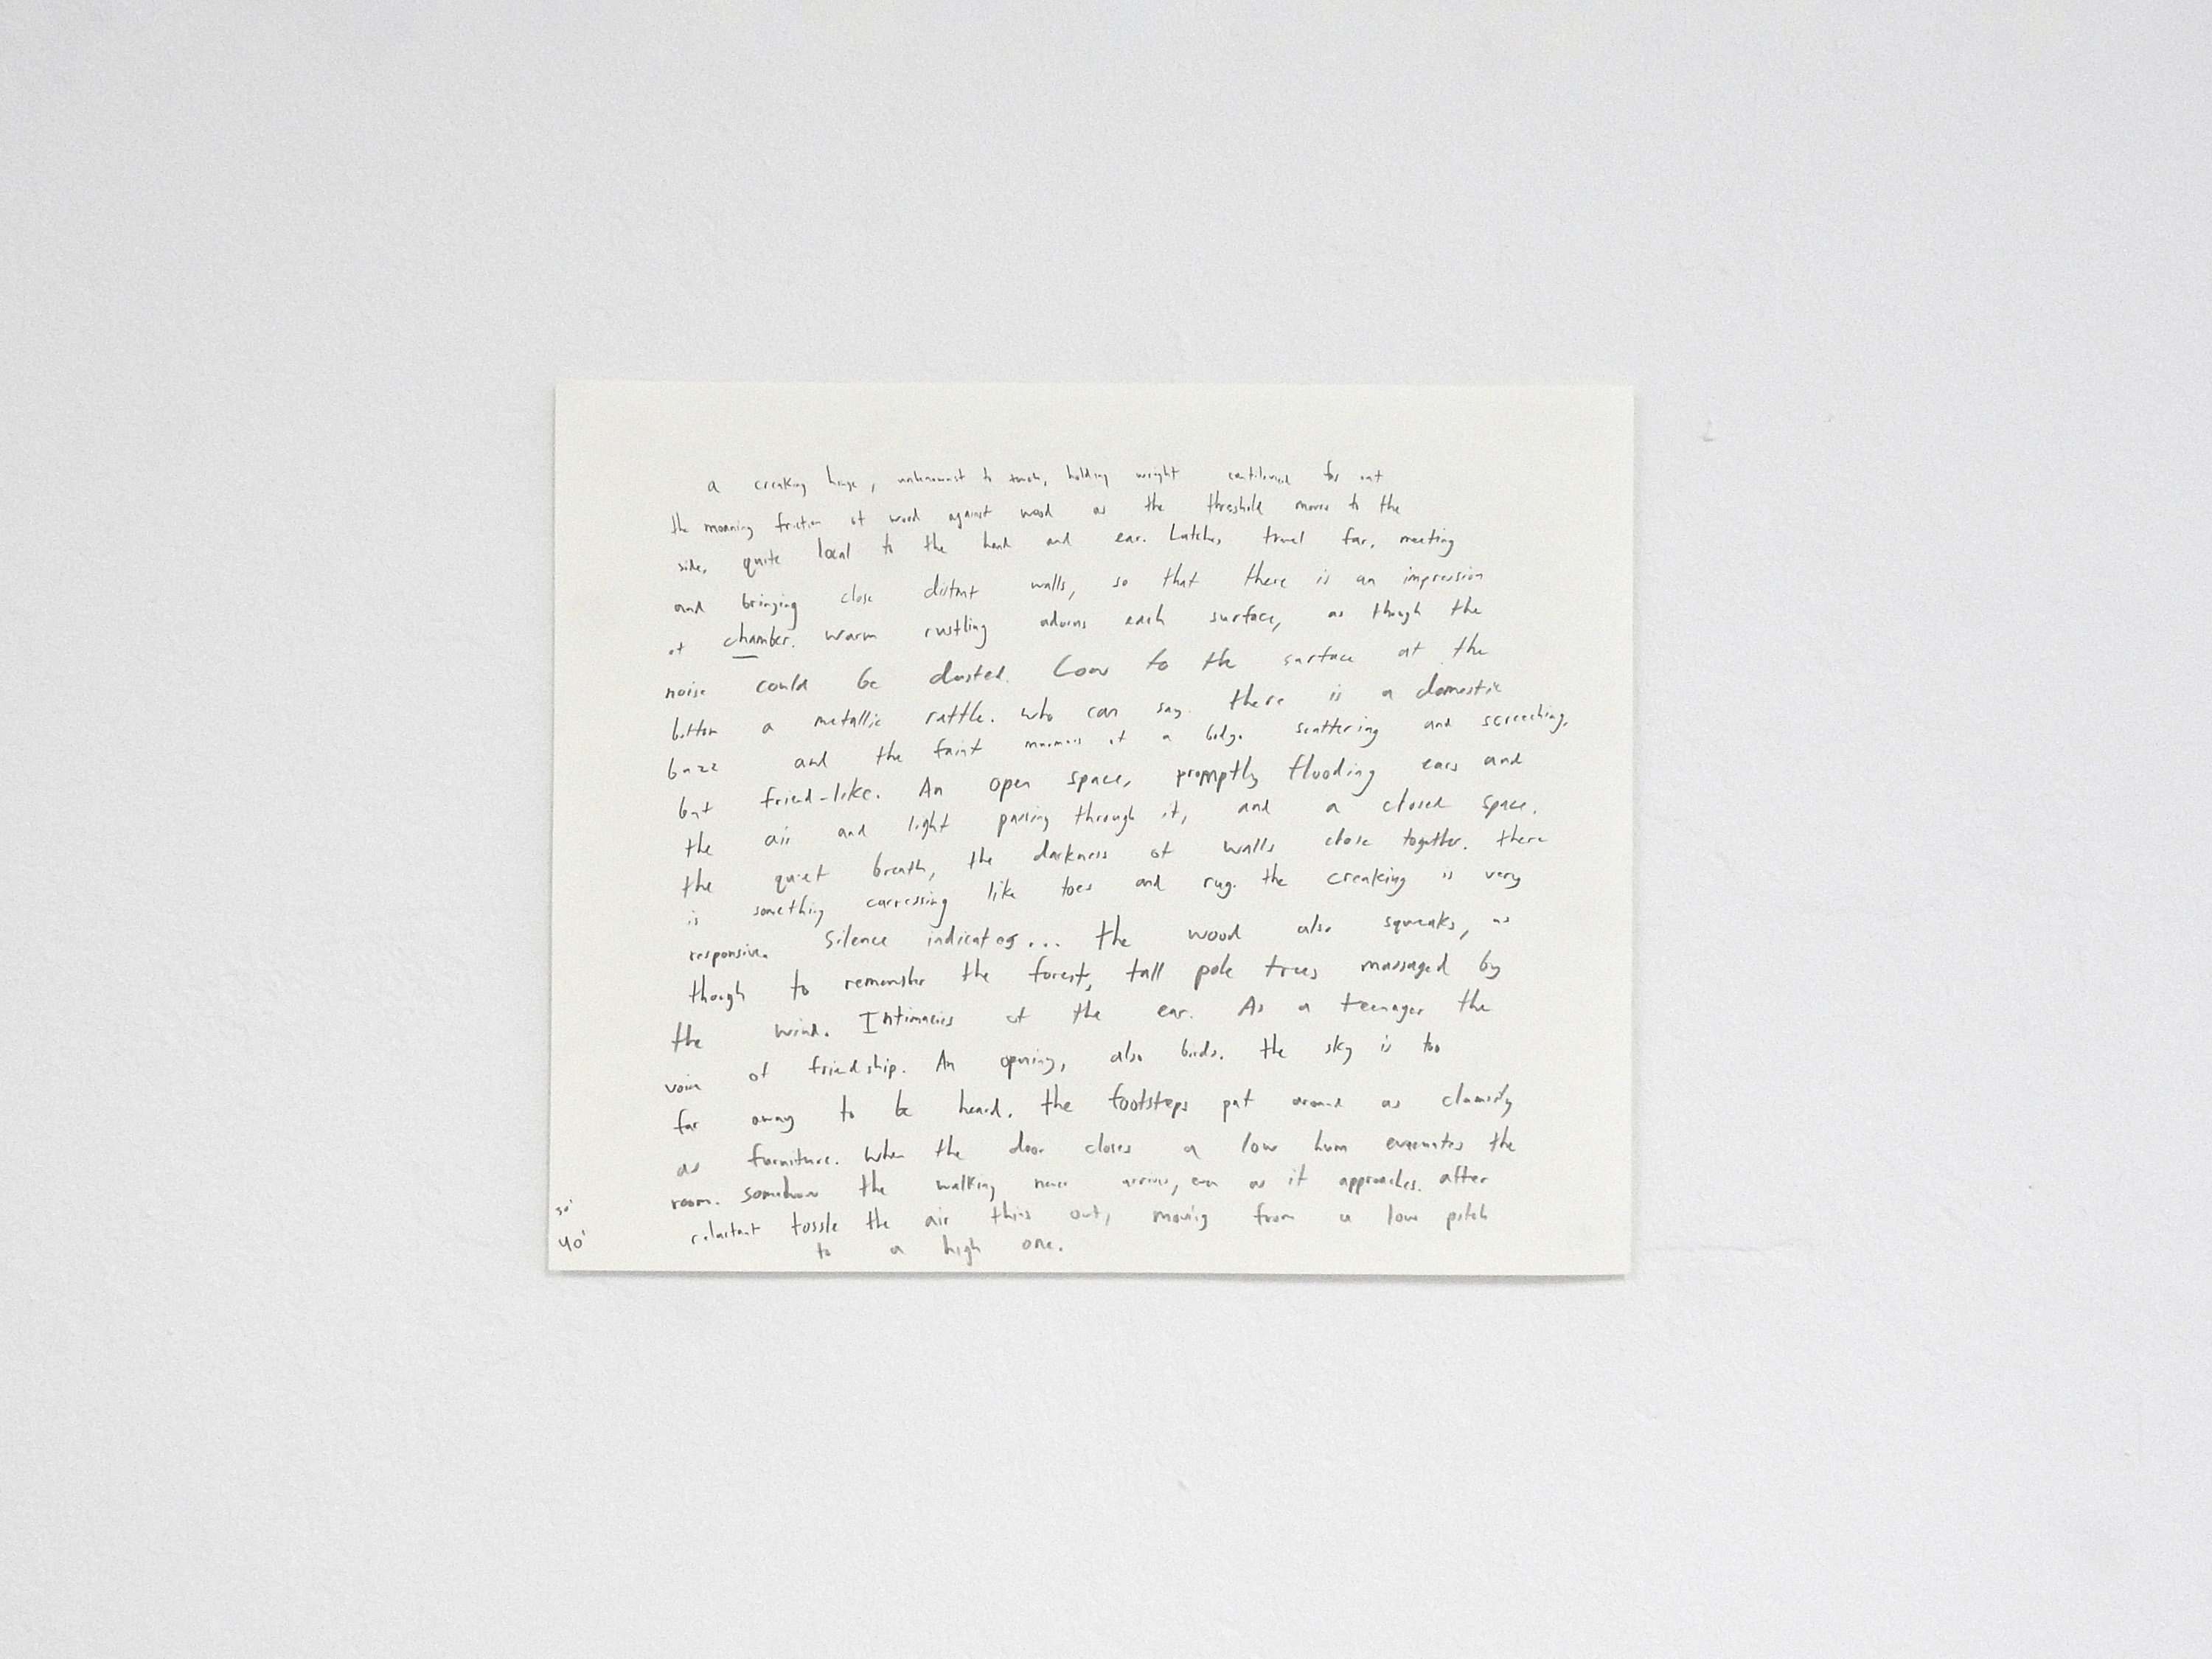 a creaking hinge, unbeknownst to touch, holding weight cantilevered far out
the moaning friction of wood against wood as the threshold moves to the
side, quite local to the hand and ear. Latches travel far, meeting
and bringing close distant walls, so that there is an impression
of chamber. warm rustling adorns each surface, as though the
noise could be dusted. Low to the surface at the
bottom a metallic rattle. who can say. there is a domestic
buzz and the faint murmurs of a body. scattering and screeching,
but friend-like. An open space, promptly flooding ears and
the air and light passing through it, and a closed space.
the quiet breath, the darkness of walls close together. there
is something carressing like toes and rug. the creaking is very
responsive. Silence indicates... the wood also squeaks, as
though to remember the forest, tall pole trees massaged by
the wind. Intimacies of the ear. As a teenager the
voice of friendship. An opening, also birds. the sky is too
far away to be heard. the footsteps pat around as clumsily
as furniture. When the door closes a low hum evacuates the
room. somehow the walking never arrives, even as it approaches. after
reluctant tussle the air thins out, moving from a low pitch
to a high one.
30'
40'